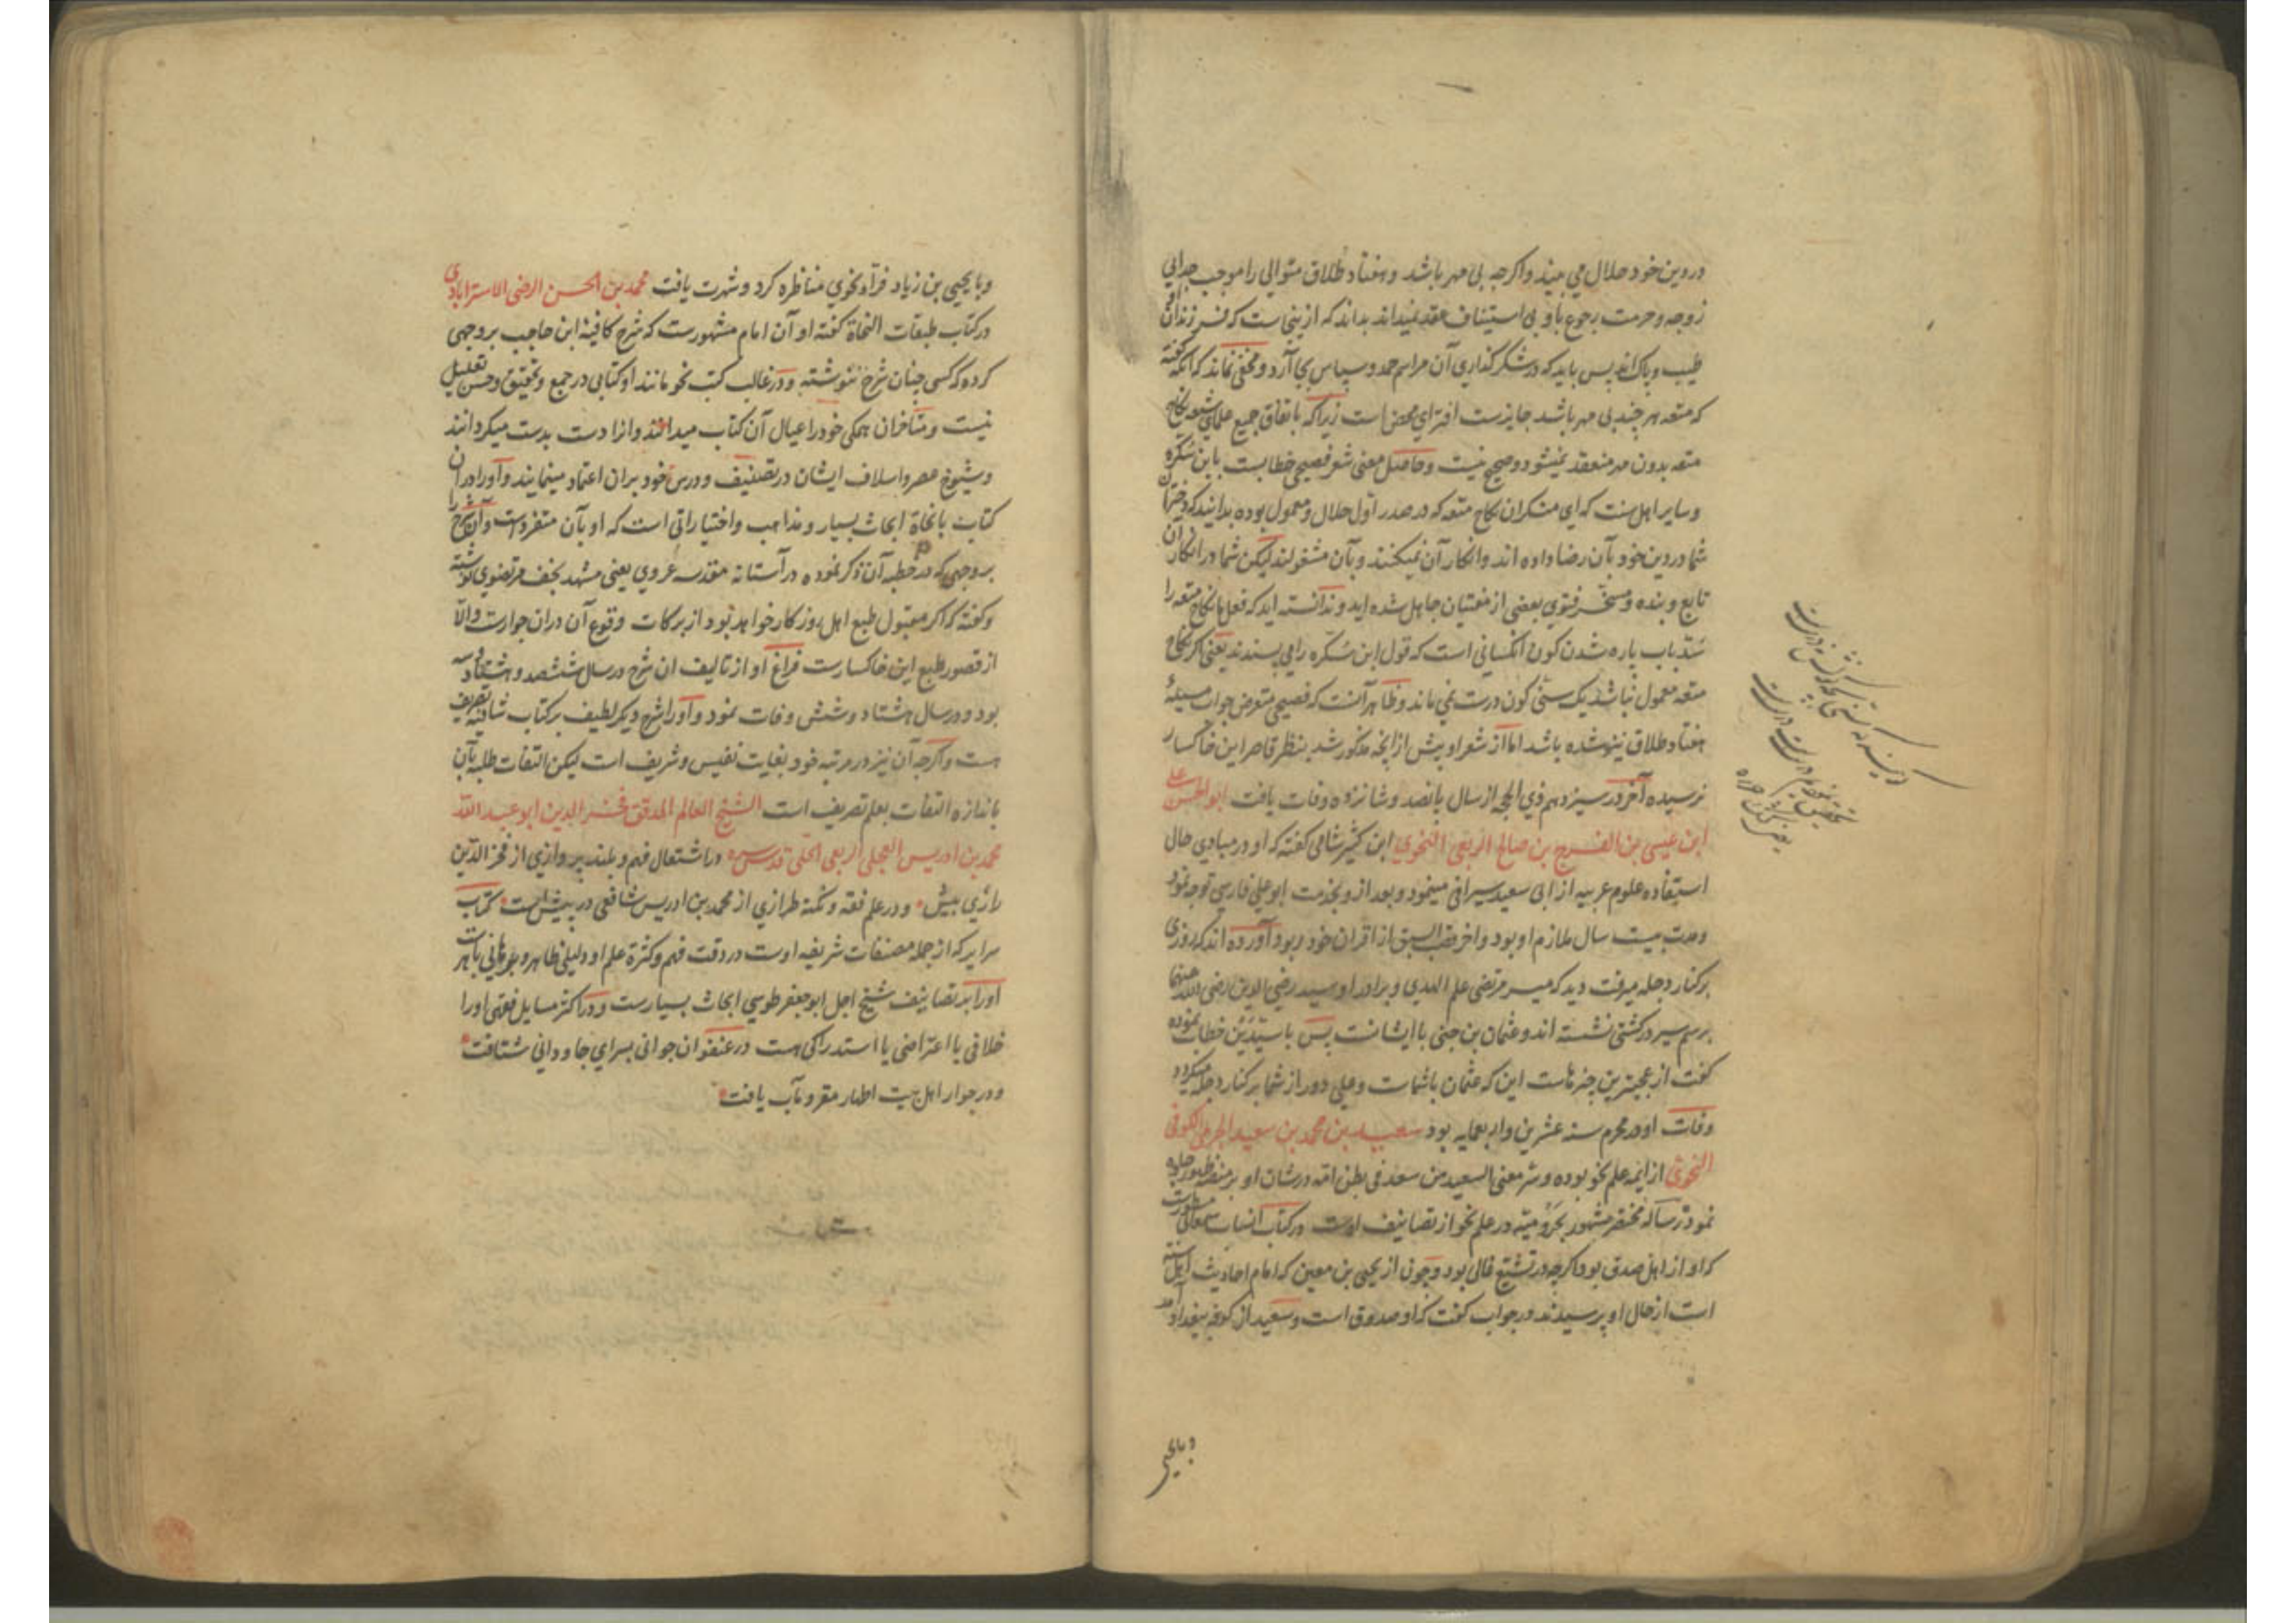 در دین خود حلال می بیند واکرچه بی مهر باشد و هفتاد طلاق متوالی را موجب جدایی
زوجه و حرمت رجوع باو بی استیناف عقد نمیداند بداند که از ینی ست که فرزندان
طیب و پاک اند پس باید که در شکر کذاری آن مراسم حمد و سپاس بجا آرد و مخفی نماند که آنکه کفته
که متعه هر چند بی مهر باشد جایزست افترای محض است زیرا که باتفاق جمیع علمای شیعه نکاح
متعه بدون مهر منعقد نمیشود و صحیح نیست و حاصل معنی شعر فصیحی خطابست باین سُکّره
و سایر اهل سنت که ای منکران نکاح متعه که در صدر اول حلال و معمول بوده بدانید که دختران
شما در دین خود بآن رضا داده اند و انکار آن نمیکنند و بآن مشغولند لیکن شما در انکار آن
تابع و بنده و مسخر فتوی بعضی از مفتیان جاهل شده اید و ندانسته اید که فعل نکاح متعه را
سُدّ باب پاره شدن کون آنکسانی است که قول ابن سُکّره را می پسندند یعنی اکر نکاح
متعه معمول نباشد یک سنّی کون درست نمی ماند و ظاهر آنست که فصیحی متعرض جواب مسیلهٔ
هفتاد طلاق نیز شده باشد اما از شعر او بیش از آنچه مذکور شد بنظر قاصر این خاکسار
نرسیده آخر در سیزدهم ذی الحجه از سال پانصد و شانزده وفات یافت ابو الحسن علی
ابن عیسی بن الفرج بن صالح الربعی النحوی ابن کثیر شامی کفته که او در مبادی حال
استفاده علوم عربیه از ابی سعید سیرافی مینمود و بعد از و بخدمت ابو علی فارسی توجه نمود
و مدت بیست سال ملازم او بود و اخر قصب السبق از اقران خود ربود آورده اند که روزی
بر کنار دجله میرفت دید که میر مرتضی علم الهدی و برادر او سید رضی الدین رضی الله عنهما
برسم سیر در کشتی نشسته اند و عثمان بن جنی با ایشانست پس با سیّدَین خطاب نموده
کفت از عجیترین چیزهاست این که عثمان با شماست و علی دور از شما بر کنار دجله میکردد
وفات او در محرم سنه عشرین و اربعمایه بود سعید بن محمد بن سعید الجرمی الکوفی
النحوی از ایمه علم نحو بوده و سرّ معنی السعید من سعد فی بطن امّه در شان او بر منصه ظهور جلوه
نمود رساله مختصر مشهور بجَرْومیّه در علم نحو از تصانیف اوست در کتاب انساب سمعانی مسطورست
که او از اهل صدق بود اکرچه در تشیّع غالی بود و چون از یحیی بن معین که امام احادیث اهل سنت
است از حال او پرسیدند در جواب کفت که او صدوق است و سعید از کوفه ببغداد آمد
و با یحیی
و با یحیی بن زیاد فرّاء نحوی مناظره کرد و شهرت یافت محمد بن الحسن الرضی الاسترابادی
در کتاب طبقات النحاة کفته او آن امام مشهورست که شرح کافیهٔ ابن حاجب بر وجهی
کرده که کسی چنان شرح ننوشته و در غالب کتب نحو مانند او کتابی در جمع و تحقیق و حسن تعلیل
نیست و متاخران همکی خود را عیال آن کتاب میدانند و انرا دست بدست میکردانند
و شیوخ عصر و اسلاف ایشان در تصنیف و درس خود بران اعتماد مینمایند و او را در ان
کتاب با نحاة ابحاث بسیار و مذاهب و اختیاراتی است که او بآن متفردست و آن شرح را
بر وجهی که در خطبه آن ذکر نموده در آستانه مقدسه غروی یعنی مشهد نجف مرتضوی نوشته
و کفته که اکر مقبول طبع اهل روزکار خواهد بود از برکات وقوع آن دران جوارست والّا
از قصور طبع این خاکسارست فراغ او از تالیف ان شرح در سال ششصد و هشتاد و سه
بود و در سال هشتاد و شش وفات نمود و او را شرح دیکر لطیف بر کتاب شافیه تصریف
هست و اکرچه آن نیز در مرتبه خود بغایت نفیس و شریف است لیکن التفات طلبه بآن
باندازه التفات بعلم تصریف است الشیخ العالم المدقق فخر الدین ابو عبد الله
محمد بن ادریس العجلی الربعی الحلّی قدس سره در اشتعال فهم و بلند پروازی از فخر الدین
رازی بیش و در علم فقه و نکته طرازی از محمد بن ادریس شافعی در پیش است کتاب
سرایر که از جمله مصنفات شریفه اوست در دقت فهم و کثرة علم او دلیلی ظاهر و برهانی باهرست
او را بر تصانیف شیخ اجل ابو جعفر طوسی ابحاث بسیارست و در اکثر مسایل فقهی او را
خلافی یا اعتراضی یا استدراکی هست در عنفوان جوانی بسرای جاودانی شتافت
و در جوار اهل بیت اطهار مقر و مآب یافت